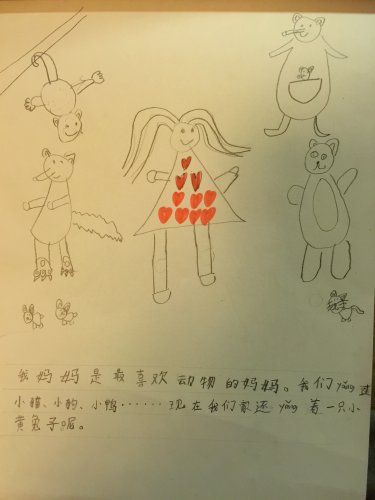 我妈妈是最喜欢动物的妈妈。我们yǎng过
小猫、小狗、小鸭······现在我们家还yǎng着一只小
黄兔子呢。